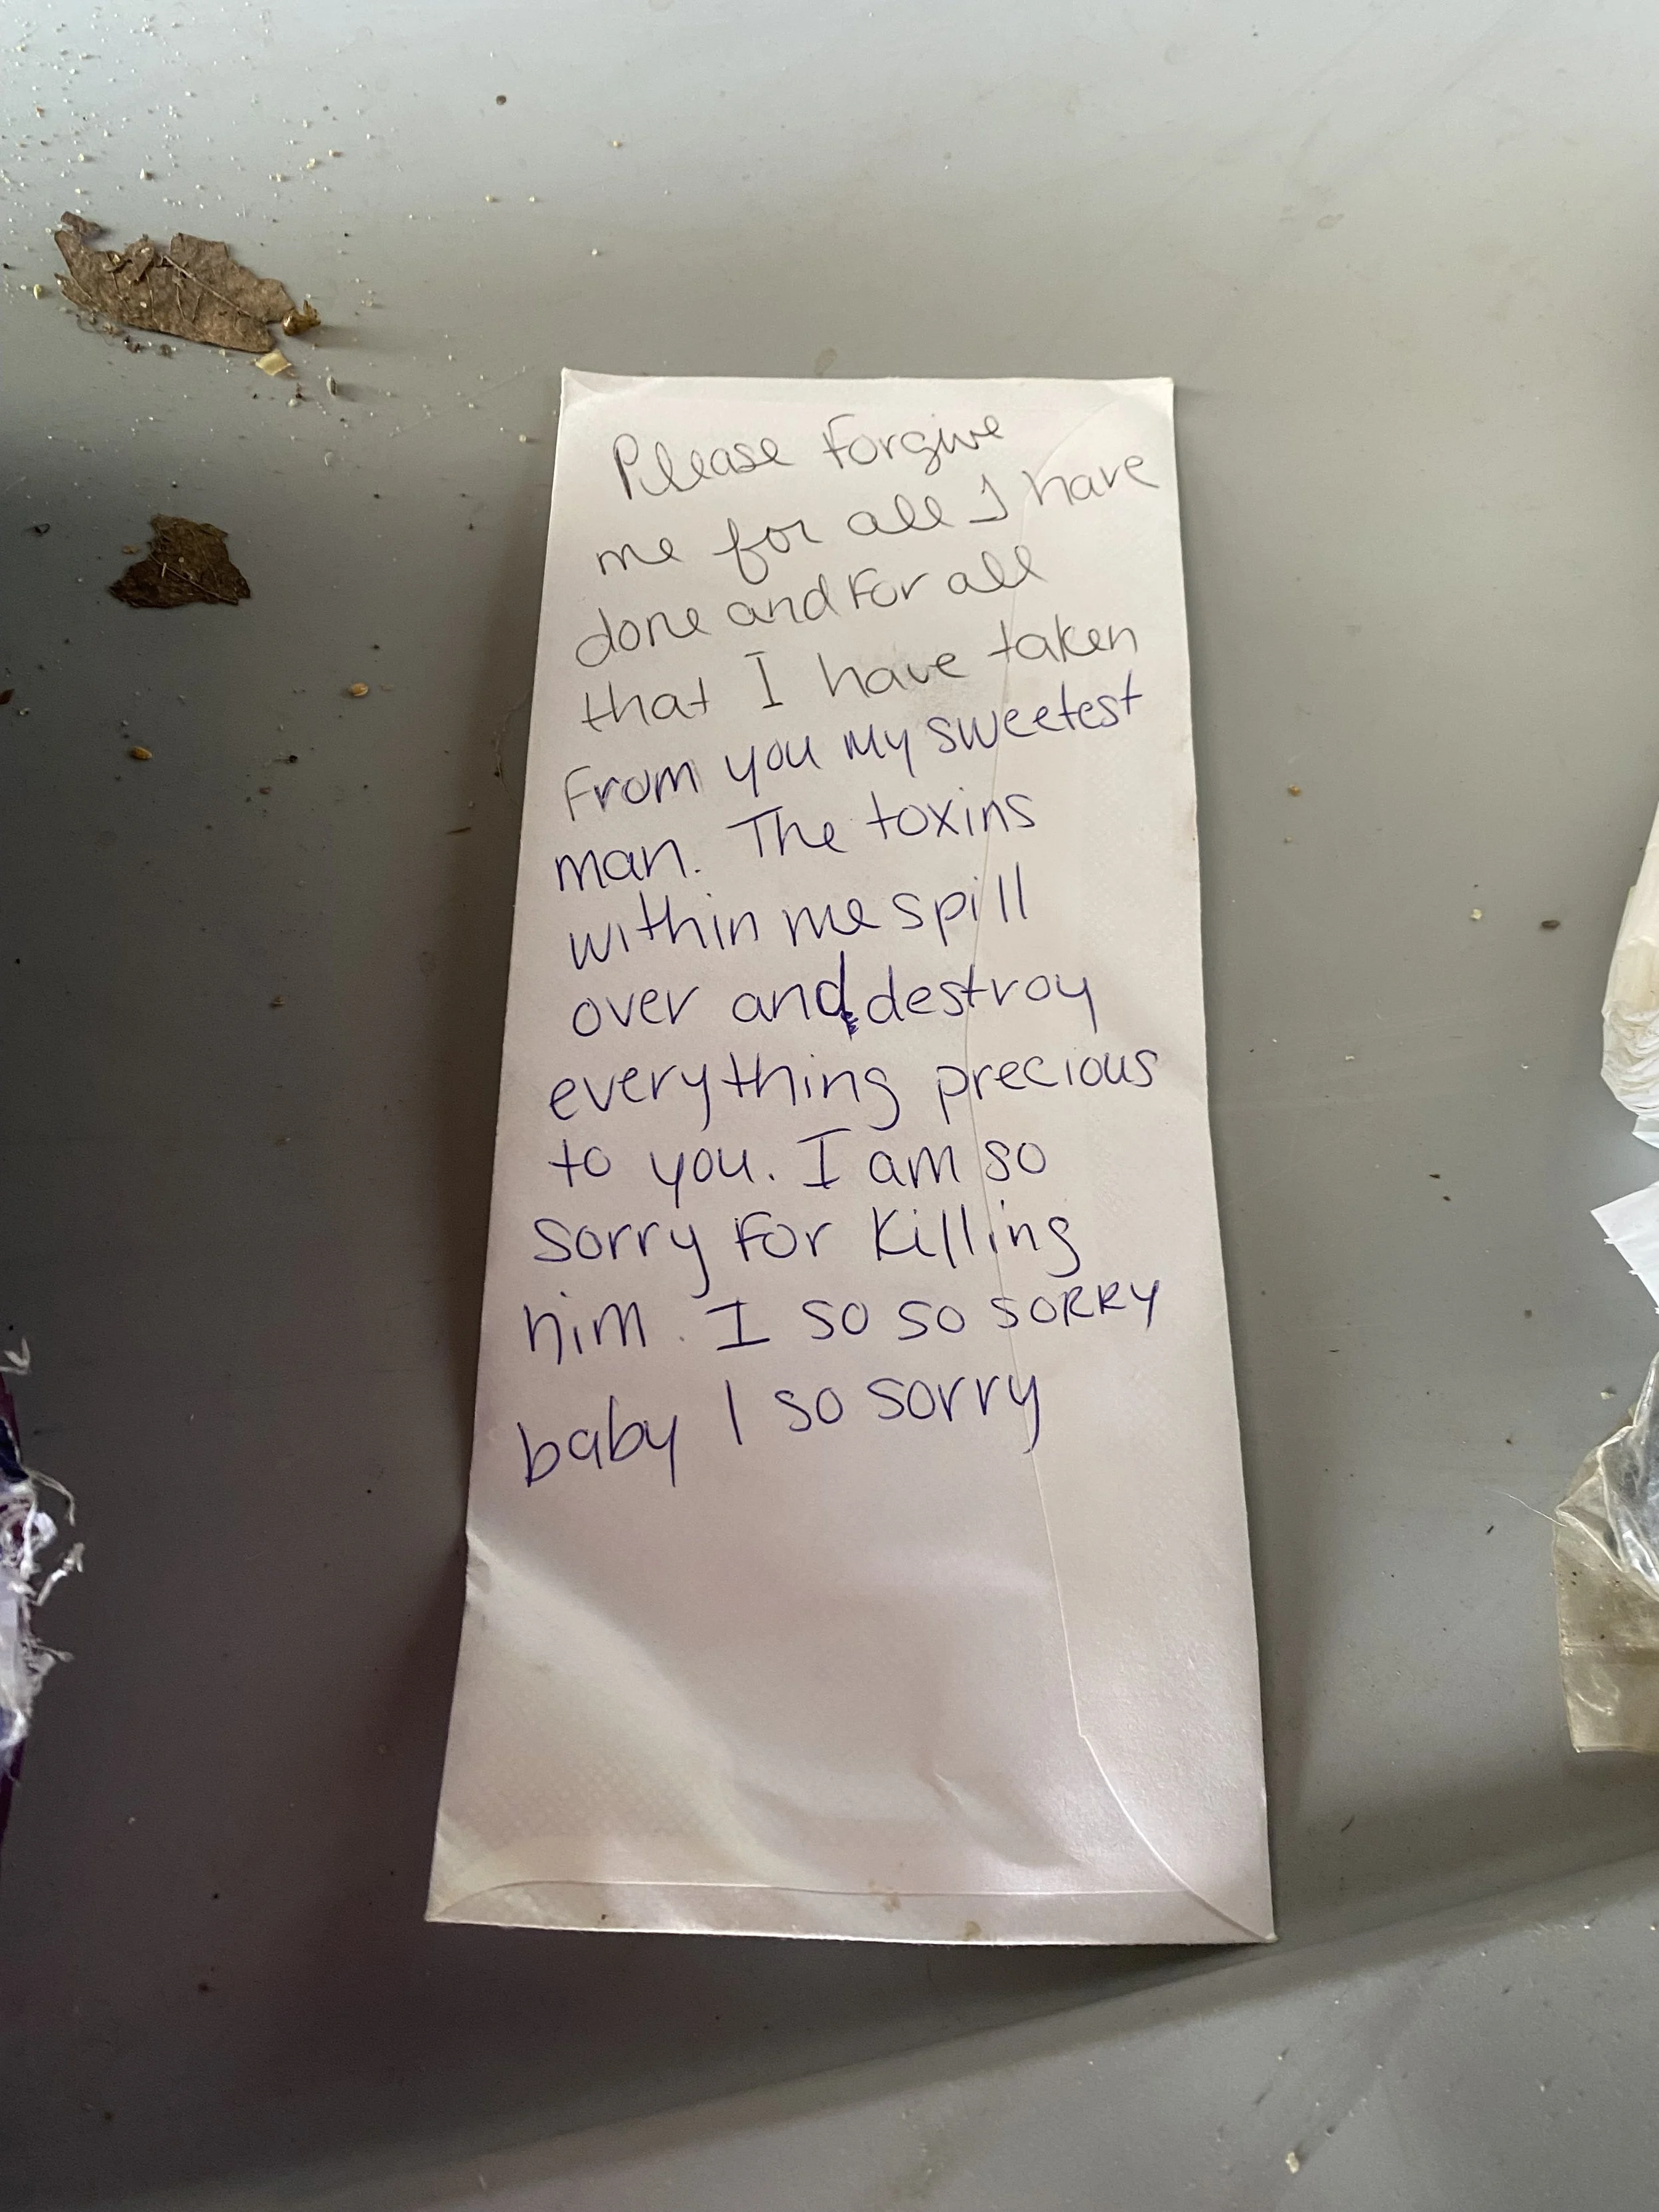 Please Forgive
me for all I have
done and For all
that I have taken
From you My sweetest
man. The toxins
within me spill
over and destroy
everything precious
to you. I am so
sorry For Killing
him. I so so sorry
baby I so sorry